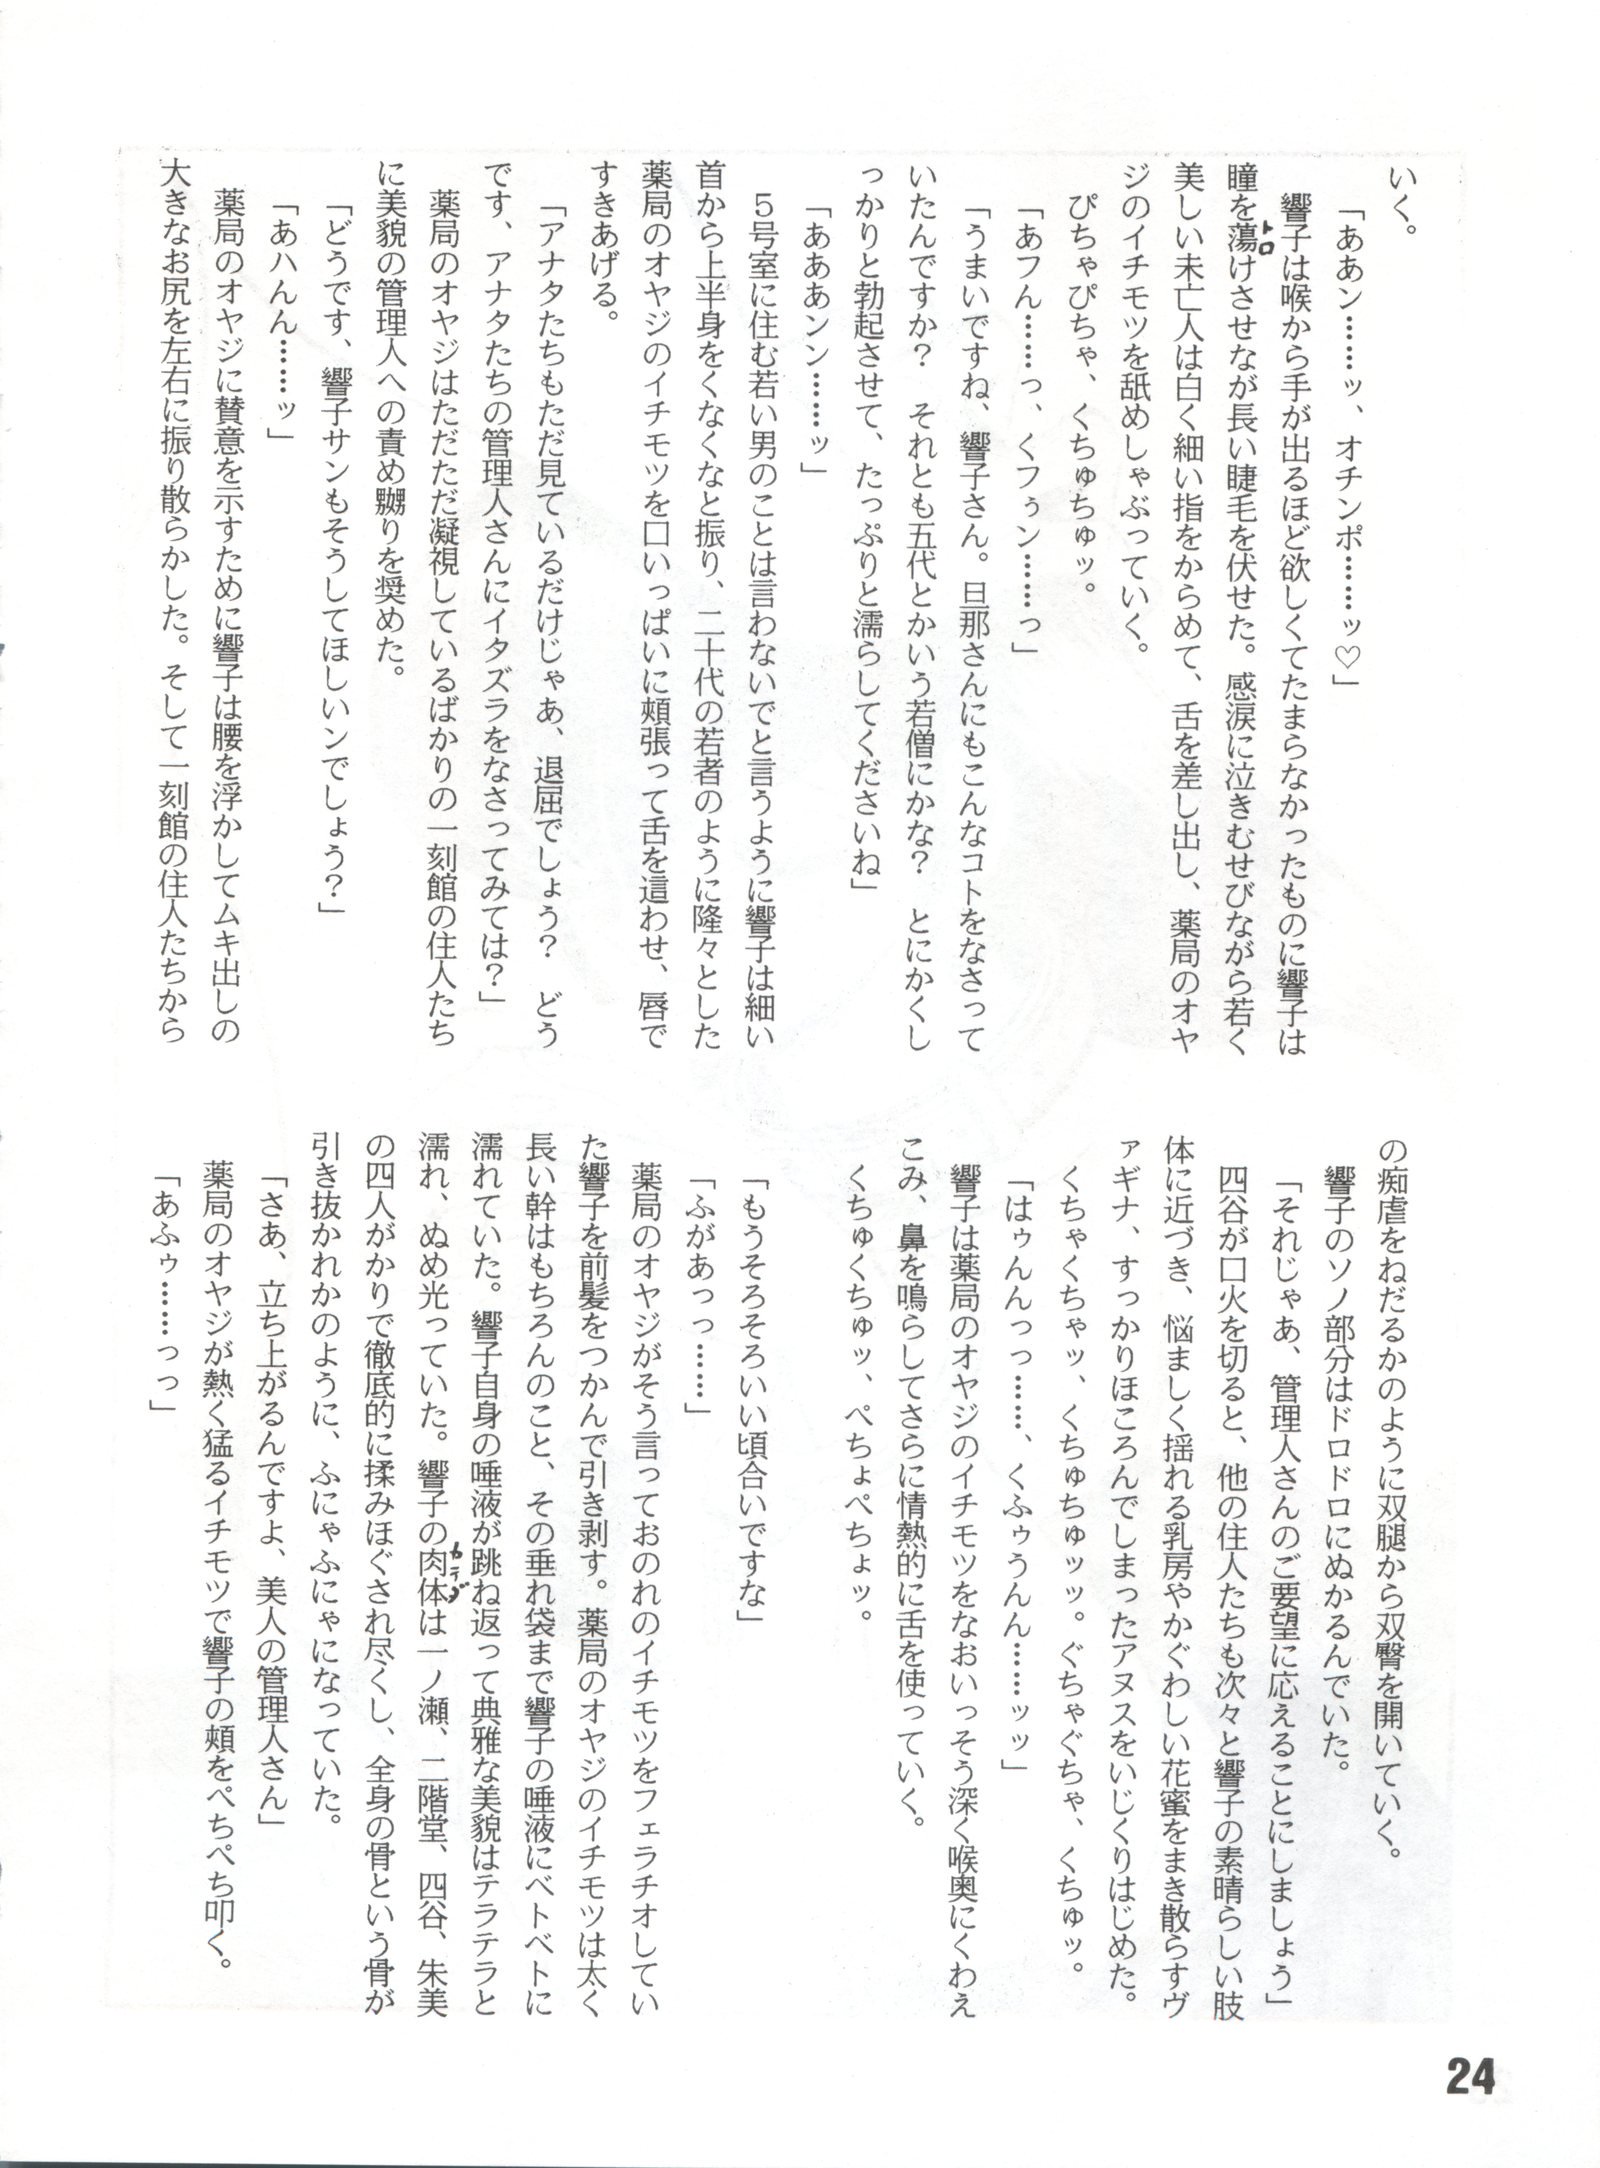 いく。
「ああン……ッ、オチンポ……ッ♡」
響子は喉から手が出るほど欲しくてたまらなかったものに響子は
瞳を蕩けさせなが長い睫毛を伏せた。感涙に泣きむせびながら若く
トロ
美しい未亡人は白く細い指をからめて、舌を差し出し、薬局のオヤ
ジのイチモツを舐めしゃぶっていく。
ぴちゃぴちゃ、くちゅちゅッ。
「あフん……っ、くフぅン……っ」
「うまいですね、響子さん。旦那さんにもこんなコトをなさって
いたんですか？　それとも五代とかいう若僧にかな？　とにかくし
っかりと勃起させて、たっぷりと濡らしてくださいね」
「あああンン……ッ」
５号室に住む若い男のことは言わないでと言うように響子は細い
首から上半身をくなくなと振り、二十代の若者のように隆々とした
薬局のオヤジのイチモツを口いっぱいに頬張って舌を這わせ、唇で
すきあげる。
「アナタたちもただ見ているだけじゃあ、退屈でしょう？　どう
です、アナタたちの管理人さんにイタズラをなさってみては？」
薬局のオヤジはただただ凝視しているばかりの一刻館の住人たち
に美貌の管理人への責め嬲りを奨めた。
「どうです、響子サンもそうしてほしいンでしょう？」
「あハんん……ッ」
薬局のオヤジに賛意を示すために響子は腰を浮かしてムキ出しの
大きなお尻を左右に振り散らかした。そして一刻館の住人たちから
の痴虐をねだるかのように双腿から双臀を開いていく。
響子のソノ部分はドロドロにぬかるんでいた。
「それじゃあ、管理人さんのご要望に応えることにしましょう」
四谷が口火を切ると、他の住人たちも次々と響子の素晴らしい肢
体に近づき、悩ましく揺れる乳房やかぐわしい花蜜をまき散らすヴ
ァギナ、すっかりほころんでしまったアヌスをいじくりはじめた。
くちゃくちゃッ、くちゅちゅッッ。ぐちゃぐちゃ、くちゅッ。
「はゥんんっっ……、くふゥうんん……ッッ」
響子は薬局のオヤジのイチモツをなおいっそう深く喉奥にくわえ
こみ、鼻を鳴らしてさらに情熱的に舌を使っていく。
くちゅくちゅッ、ぺちょぺちょッ。
「もうそろそろいい頃合いですな」
「ふがあっっ……」
薬局のオヤジがそう言っておのれのイチモツをフェラチオしてい
た響子を前髪をつかんで引き剥す。薬局のオヤジのイチモツは太く
長い幹はもちろんのこと、その垂れ袋まで響子の唾液にベトベトに
濡れていた。響子自身の唾液が跳ね返って典雅な美貌はテラテラと
濡れ、ぬめ光っていた。響子の肉体は一ノ瀬、二階堂、四谷、朱美
カラダ
の四人がかりで徹底的に揉みほぐされ尽くし、全身の骨という骨が
引き抜かれかのように、ふにゃふにゃになっていた。
「さあ、立ち上がるんですよ、美人の管理人さん」
薬局のオヤジが熱く猛るイチモツで響子の頬をぺちぺち叩く。
「あふゥ……っっ」
24